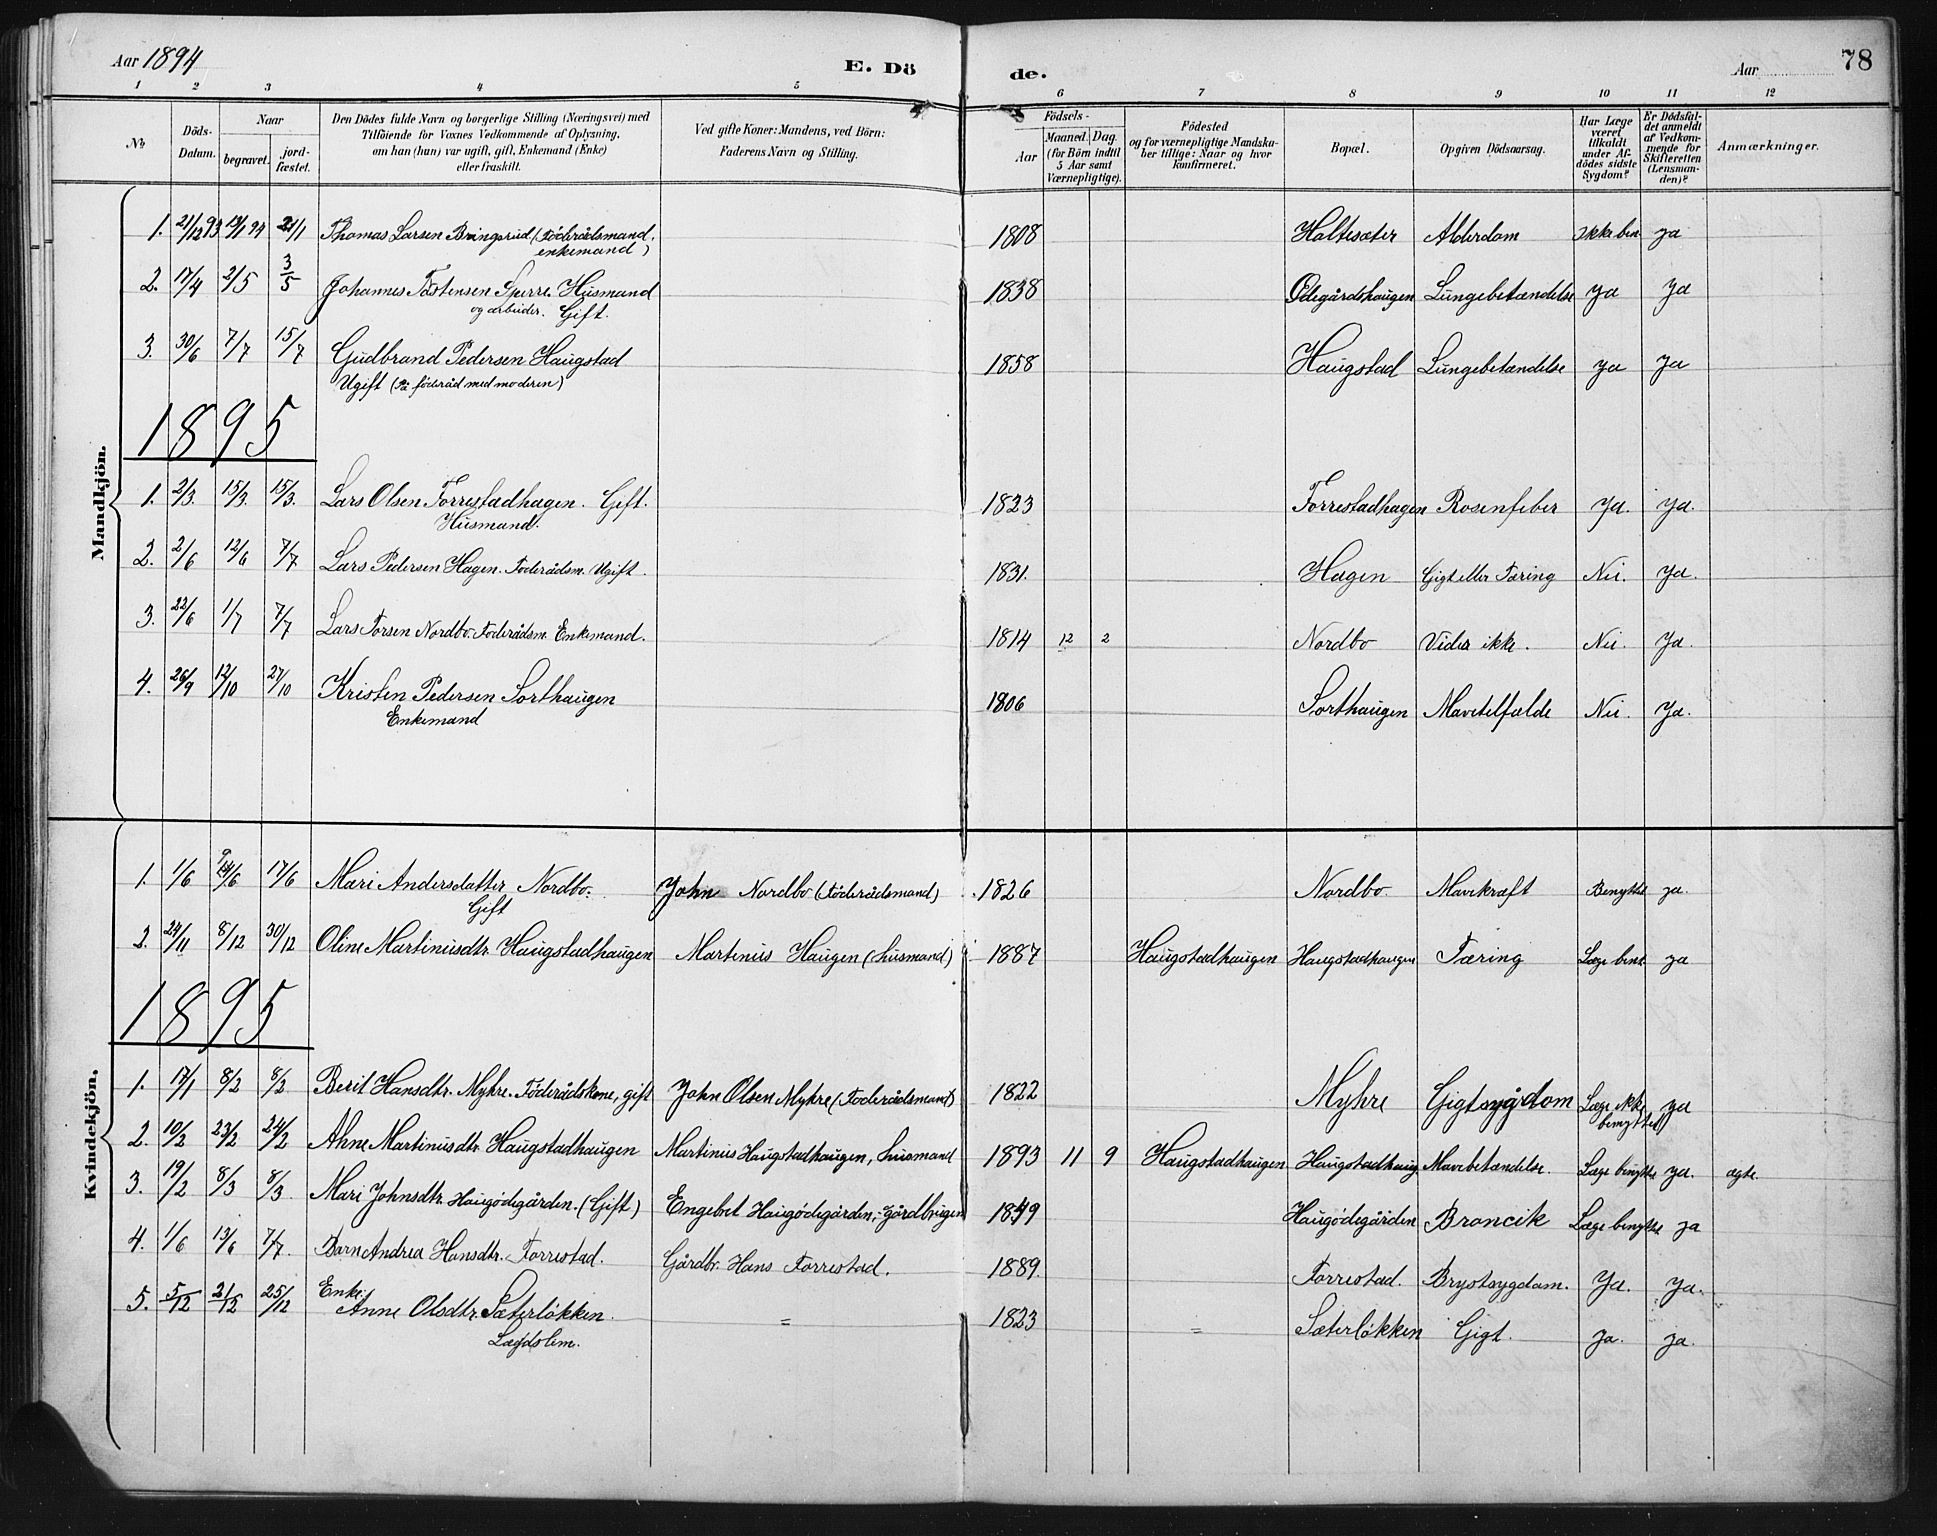 Aar 1894 E. Dö de. Aar 78
1 2 3 4 5 6 7 8 9 10 11 12
No
Döds-Datum.
Naar
begravet.
jord-fæstet.
Den Dödes fulde Navn og borgerlige Stilling (Næringsvei) med
Tilföiende for Voxnes Vedkommende af Oplysning,
om han (hun) var ugift, gift, Enkemand (Enke)
eller fraskilt.
Ved gifte Koner: Mandens, ved Börn:
Faderens Navn og Stilling.
Födsels-
Aar
Maaned. Dag.
(for Börn indtil
5 Aar samt
Værnepligtige).
Födested
og for værnepligtige Mandska-
ber tillige: Naar og hvor
konfirmeret.
Bopæl.
Opgiven Dödsaarsag.
Har Læge
været
tilkaldt
under Af-
dödes sidste
Sygdom?
Er Dödsfal-
det anmeldt
af Vedkom-
mende for
Skifteretten
(Lensman-
den)?
Anmærkninger.
Mandkjön.
1. 21/12 93 19/1 94 21/1 Thomas Larsen Bringsrud (Föderådsmand, 1808 Haltesæter Alderdom Ikke ben. ja
enkemand)
2. 17/4 2/5 3/5 Johannes Tostensen Sperre. Husmand 1838 Ödegårdshaugen Lungebetændelse ja ja
og arbeider. Gift.
3. 30/6 7/7 15/7 Gudbrand Pedersen Haugstad 1858 Haugstad Lungebetændelse ja ja
Ugift (På föderåd med moderen)
1895
1. 2/3 15/3. 15/3. Lars Olsen Forrestadhagen. Gift. 1823 Forrestadhagen Rosenfeber Ja. Ja.
Husmand.
2. 2/6 12/6 7/7 Lars Pedersen Hagen. Föderådsm. Ugift. 1831. Hagen Gigt eller Tæring Nei. Ja.
3. 22/6 1/7 7/7 Lars Torsen Nordbo. Föderådsm. Enkemand. 1814 12 2 Nordbo Vides ikke. Nei. Ja.
4. 26/9 12/10 27/10 Kristen Pedersen Sorthaugen 1806 Sorthaugen Mavetilfælde Nei. Ja.
Enkemand
Kvindekjön.
1. 1/6 9/6 17/6 Mari Andersdatter Nordbo. John Nordbo (Föderådsmand) 1826 Nordbo. Mavekræft Benyttet ja.
Gift
2. 24/11 8/12 30/12 Oline Martinusdtr. Haugstadhaugen Martinus Haugen (husmand) 1887 Haugstadhaugen Haugstadhaugen Tæring Læge bent. ja
1895
1. 17/1 8/2 8/2 Berit Hansdtr. Myhre. Föderådskone, gift John Olsen Myhre (Föderådsmand) 1822 Myhre Gigtsygdom Læge ikke ja
benyttet
2. 10/2 23/2 24/2 Ahne Martinusdtr. Haugstadhaugen Martinus Haugstadhaugen, husmand 1893 11 9 Haugstadhaugen Haugstadhaug Mavebetændelse. Læge benyttet ja. ægte.
3. 19/2 8/3 8/3 Mari Johnsdtr. Haugödegården. (Gift) Engebret Haugödegården, gårdbruger 1849 Haugödegården Broncik Læge benyttet ja
4. 1/6 13/6 7/7. Barn Andrea Hansdtr. Forrestad. Gårdbr. Hans Forrestad. 1889. Forrestad. Brystsygdom. Ja. Ja.
5. 5/12 21/12 25/12 Enke. Anne Olsdtr. Sæterløkken. = 1823 = Sæterløkken Gigt. ja. ja.
Lægdslem.